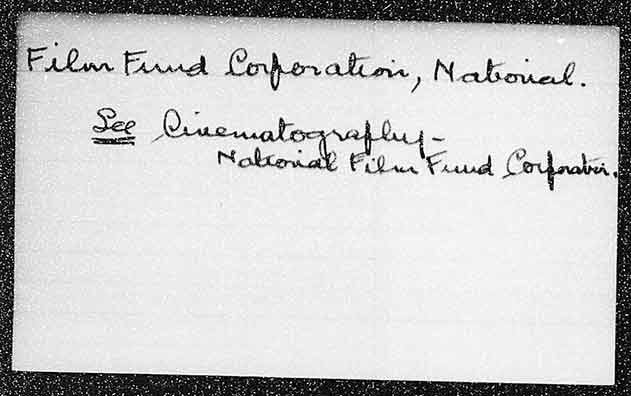 Film Fund Corporation, National.
See Cinematography-
National Film Fund Corporation.